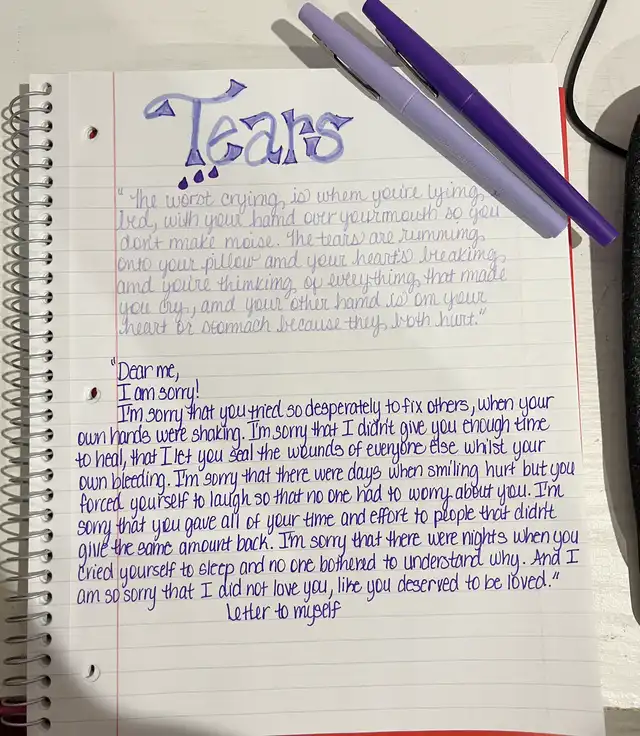 Tears
"The worst crying, is when you're lying,
bed, with your hand over your mouth so you
don't make noise. The tears are running,
onto your pillow and your heart's breaking,
and you're thinking, of everything, that made
you cry, and your other hand is on your
heart or stomach because they both hurt."
"Dear me,
I am sorry!
I'm sorry that you tried so desperately to fix others, when your
own hands were shaking. I'm sorry that I didn't give you enough time
to heal, that I let you seal the wounds of everyone else whilst your
own bleeding. I'm sorry that there were days when smiling hurt but you
forced yourself to laugh so that no one had to worry about you. I'm
sorry that you gave all of your time and effort to people that didn't
give the same amount back. I'm sorry that there were nights when you
cried yourself to sleep and no one bothered to understand why. And I
am so sorry that I did not love you, like you deserved to be loved."
Letter to myself